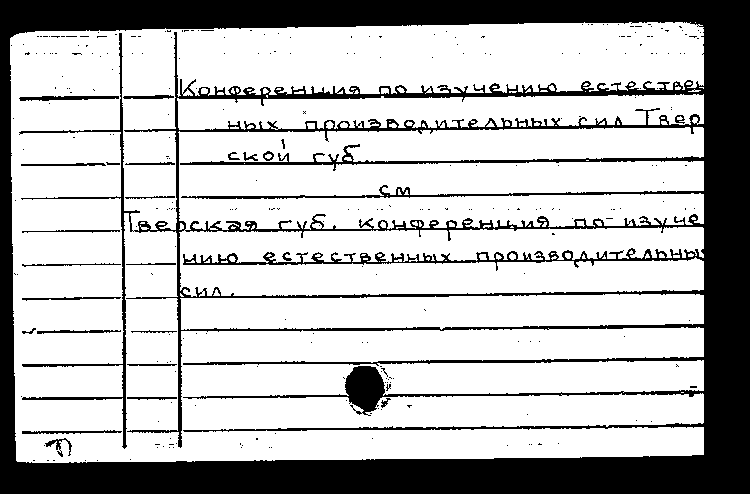 Конференция по изучению естествен
ных производительных сил Твер
ской губ.
см
Тверская губ. конференция по изуче
нию естественных производительны
сил.